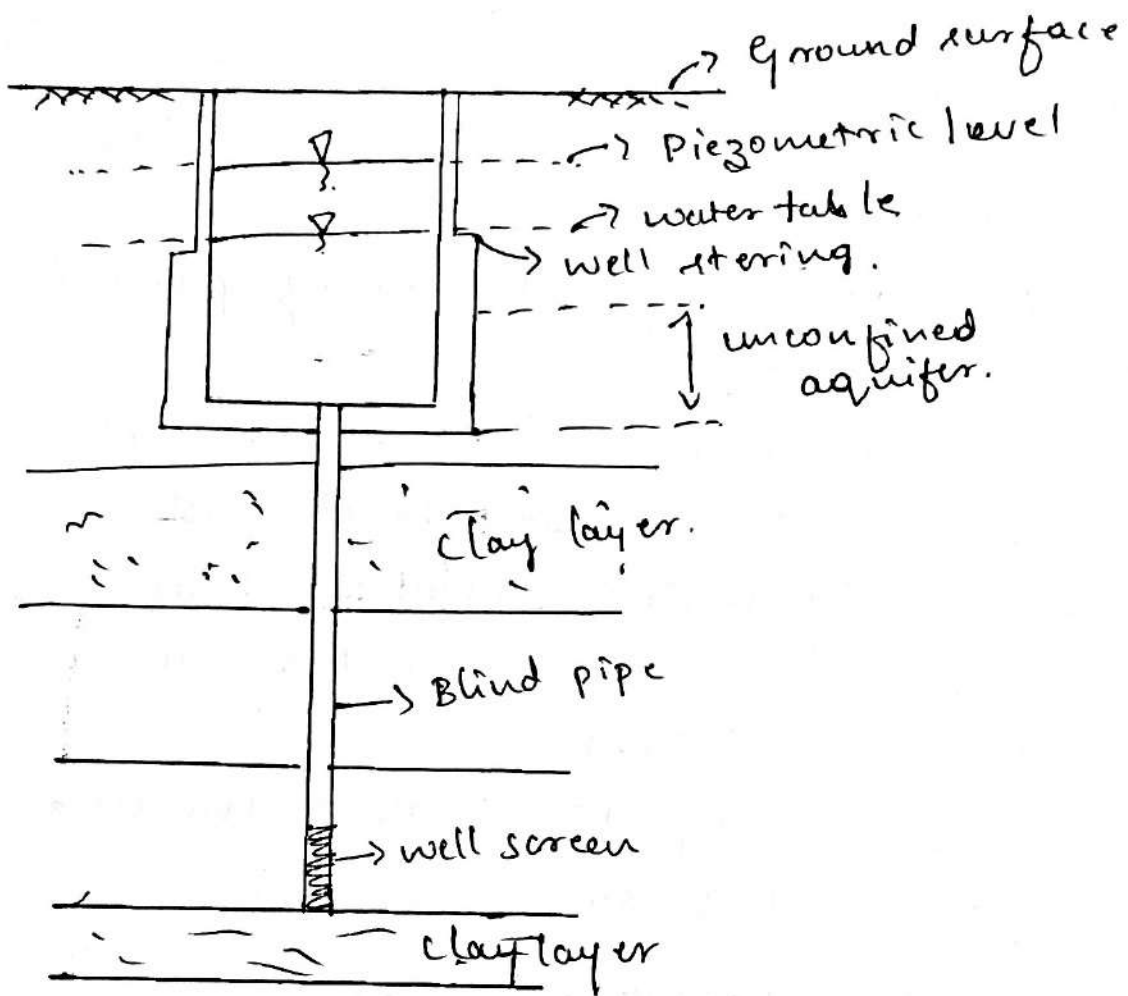 Ground surface
Piezometric level
water table
well stering.
unconfined
aquifer.
clay layer.
Blind pipe
well screen
clay layer